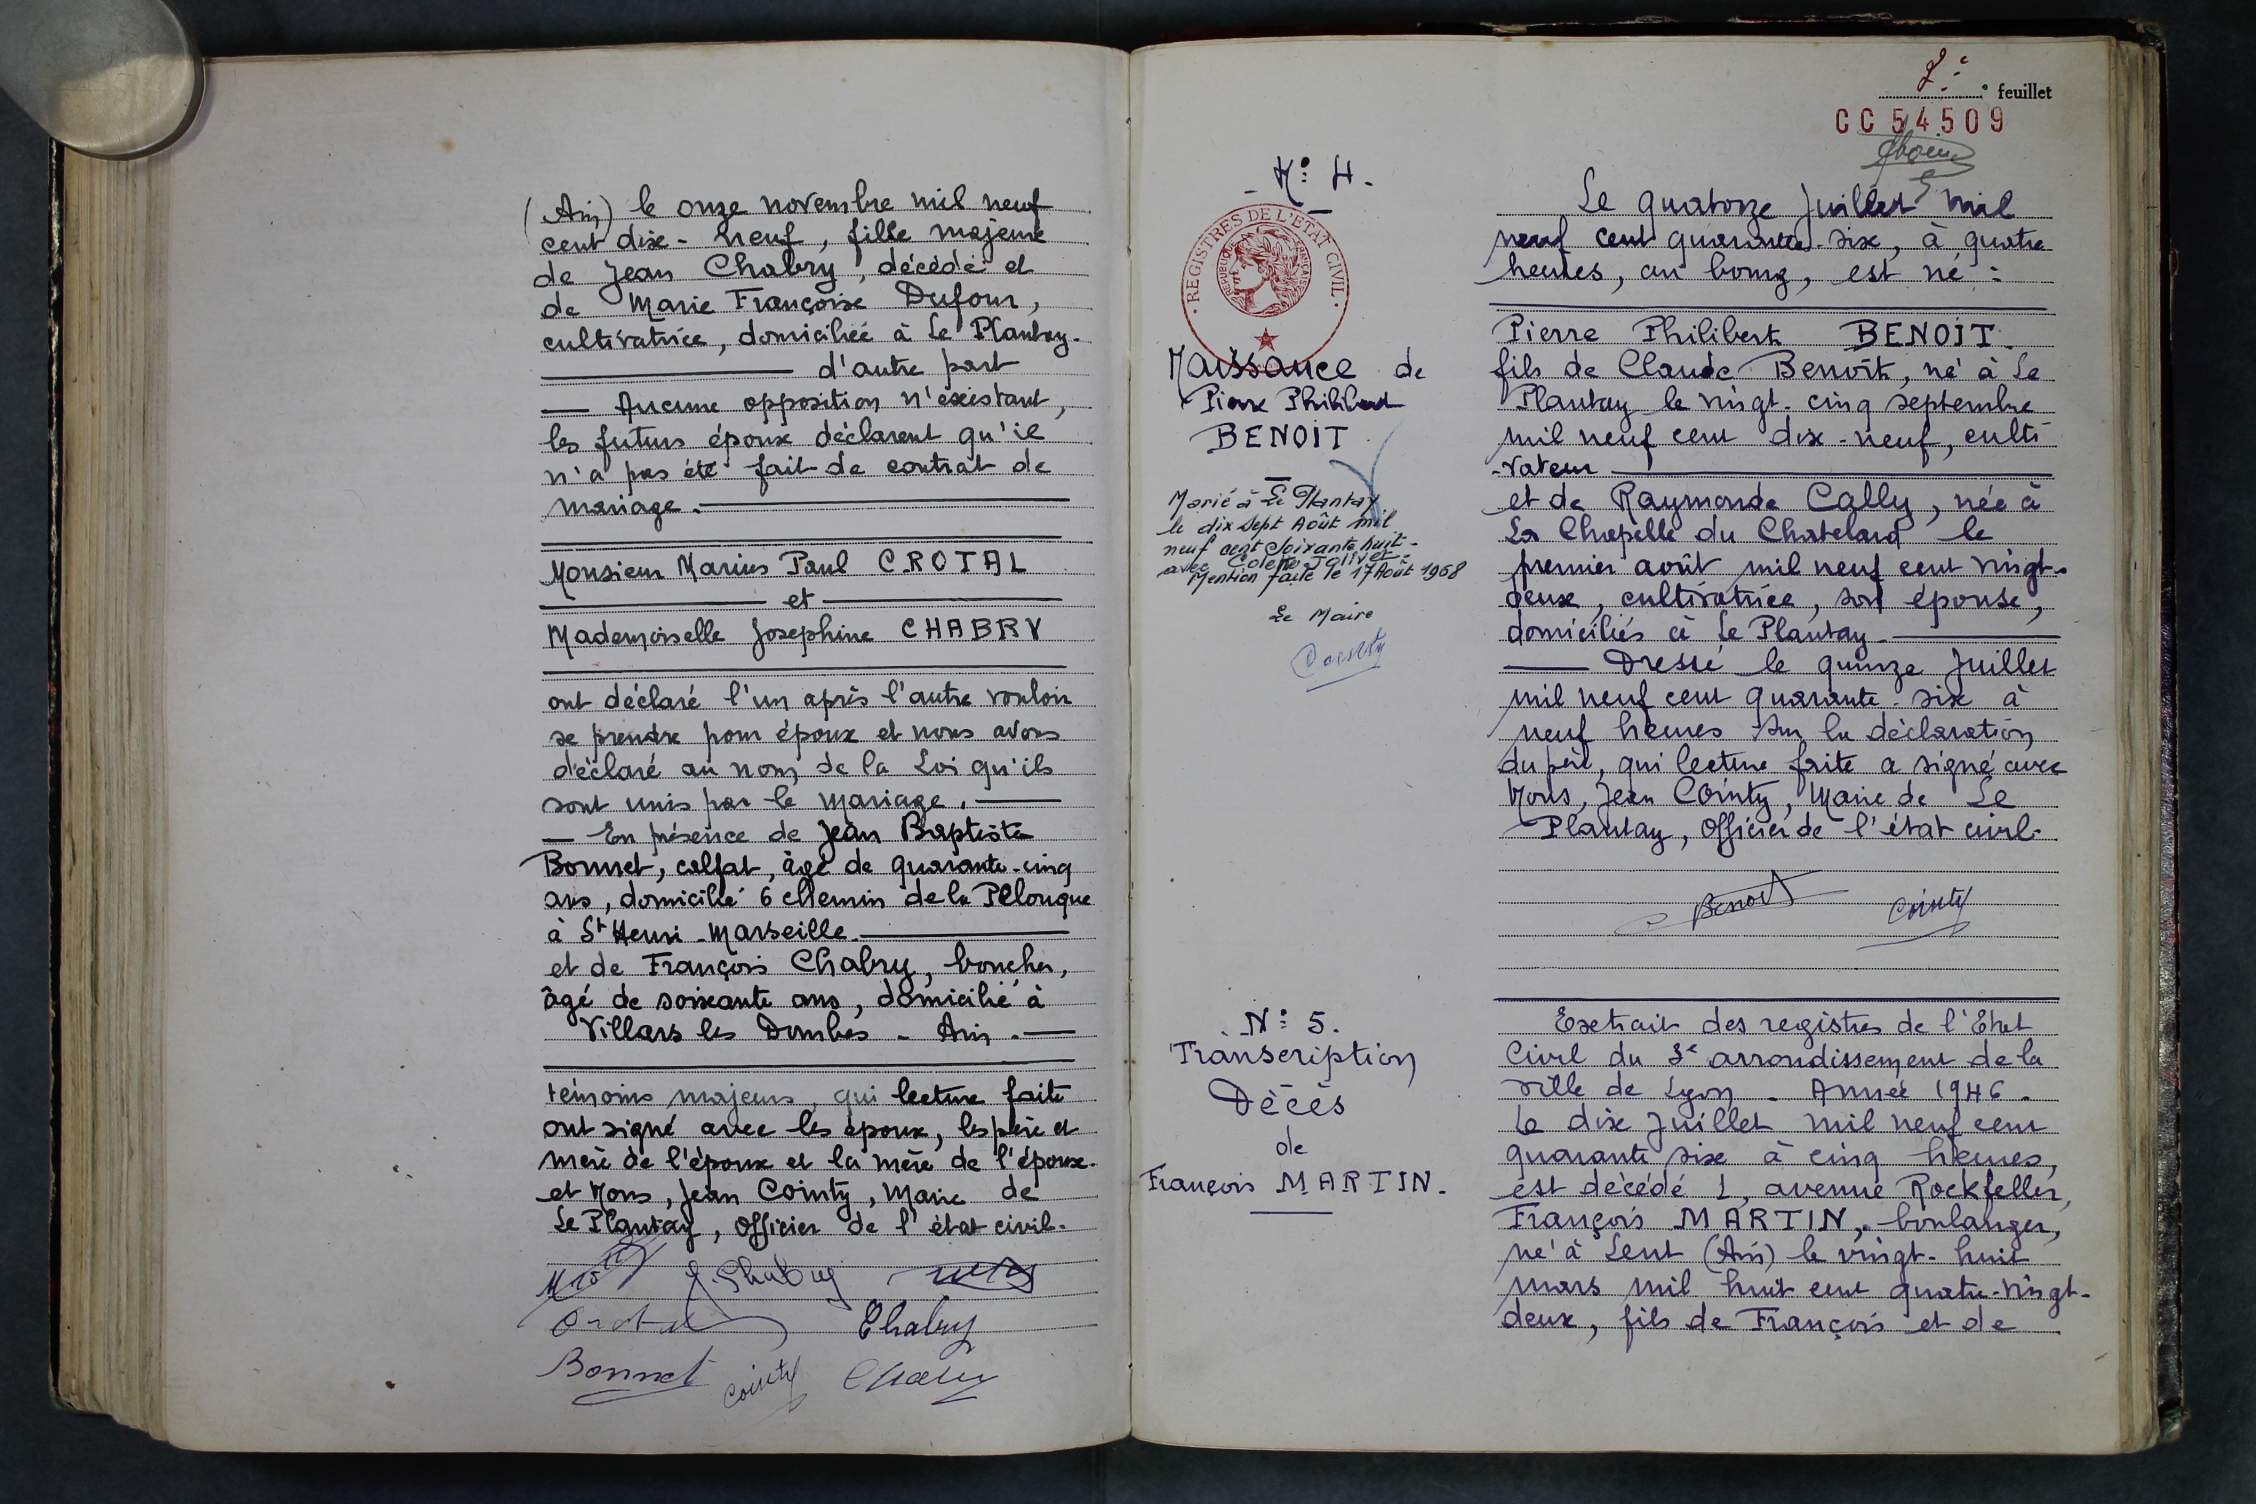 (Ain) le onze novembre mil neuf
cent dix-neuf, fille majeure
de Jean Chabry, décédé et
de Marie Françoise Dufour,
cultivatrice, domiciliée à Le Plantay.
d'autre part
Aucune opposition n'existant,
les futurs époux déclarent qu'il
n'a pas été fait de contrat de
mariage.
Monsieur Marius Paul CROTAL
et
Mademoiselle Josephine CHABRY
ont déclaré l'un après l'autre vouloir
se prendre pour époux et nous avons
déclaré au nom de la Loi qu'ils
sont unis par le mariage.
En présence de Jean Baptiste
Bonnet, calfat, âgé de quarante-cinq
ans, domicilié 6 chemin de la Pelouque
à St Henri - Marseille.
et de François Chabry, boucher,
âgé de soixante ans, domicilié à
Villars les Dombes - Ain.
témoins majeurs, qui lecture faite
ont signé avec les époux, les père et
mère de l'époux et la mère de l'épouse
et Nous, Jean Cointy, Maire de
Le Plantay, Officier de l'état civil.
J. Chabry
Chabry
Bonnet Cointy
2e feuillet
CC 54509
N° 4.
REGISTRES DE L'ETAT CIVIL
REPUBLIQUE FRANÇAISE
Naissance de
Pierre Philibert
BENOIT
Marié à Le Plantay
le dix sept Août mil
neuf cent soixante huit -
avec Colette Jolivet.
Mention faite le 17 Août 1968
Le Maire
Cointy
Le quatorze Juillet mil
neuf cent quarante-six, à quatre
heures, au bourg, est né :
Pierre Philibert BENOIT.
fils de Claude Benoît, né à Le
Plantay le vingt-cinq septembre
mil neuf cent dix-neuf, culti
-vateur
et de Raymonde Cally, née à
La Chapelle du Chatelard le
premier août mil neuf cent vingt-
deux, cultivatrice, son épouse,
domiciliés à Le Plantay.
Dressé le quinze Juillet
mil neuf cent quarante-six à
neuf heures sur la déclaration
du père, qui lecture faite a signé avec
Nous, Jean Cointy, Maire de Le
Plantay, Officier de l'état civil.
Benoit Cointy
N° 5.
Transcription
Décès
de
François MARTIN.
Extrait des registres de l'Etat
Civil du 3e arrondissement de la
ville de Lyon - Année 1946.
Le dix Juillet mil neuf cent
quarante six à cinq heures,
est décédé 1, avenue Rockfeller,
François MARTIN, boulanger,
né à Lent (Ain) le vingt-huit
mars mil huit cent quatre-vingt-
deux, fils de François et de